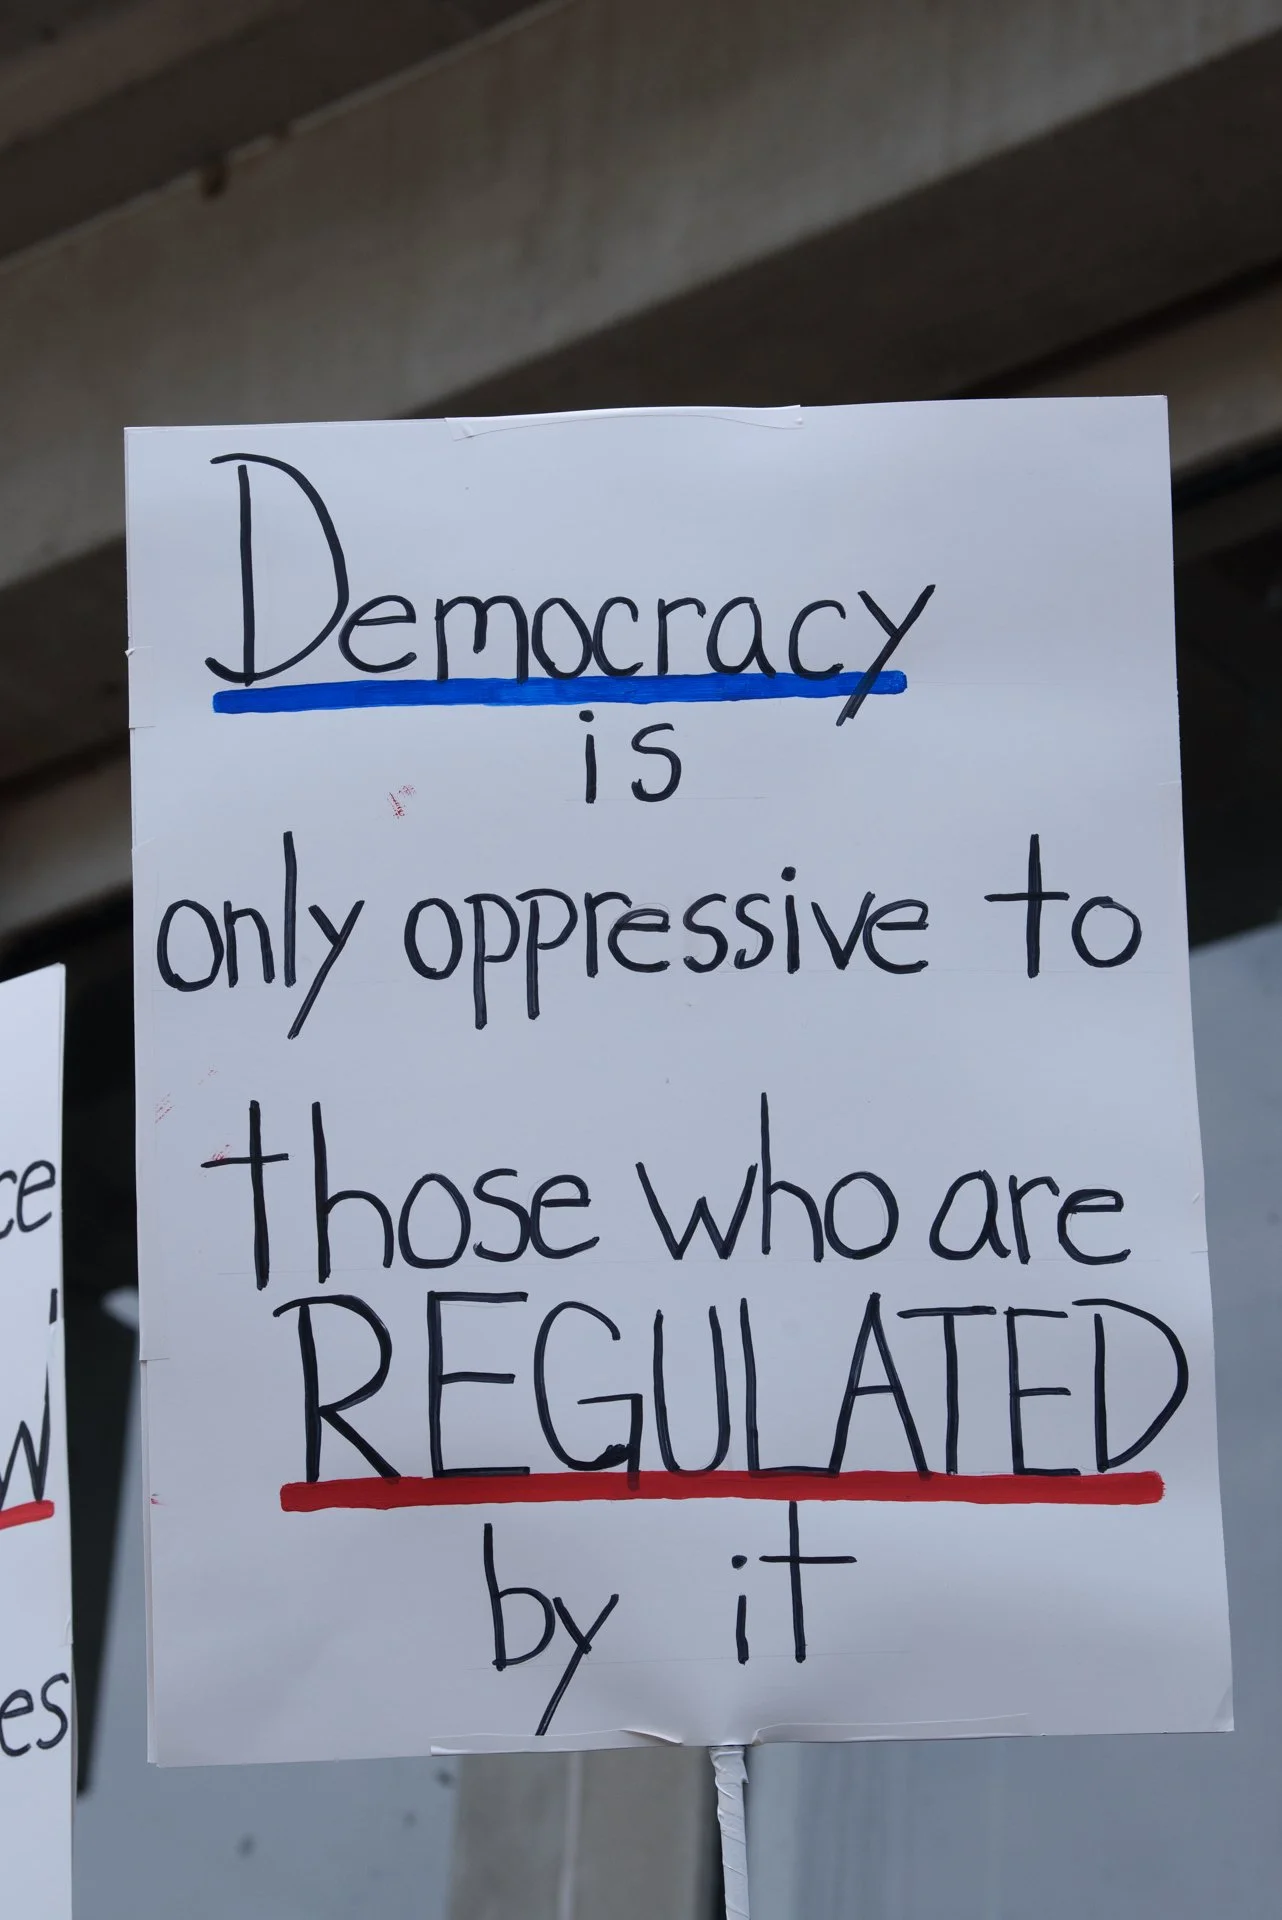 Democracy
is
only oppressive to
those who are
REGULATED
by it
ce
w
es